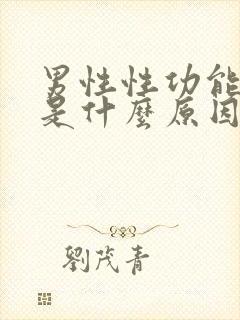 男性性功能
是什麼原因
劉茂青